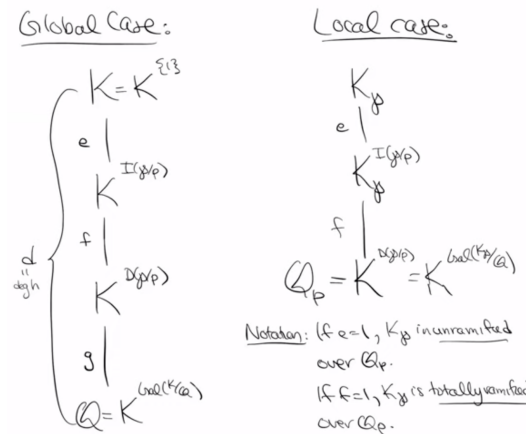 Global Case:
K = K^{1}
e
K^I(𝔭/p)
f
K^D(𝔭/p)
d
"
degh
g
Q = K^Gal(K/Q)
Local case:
K_𝔭
e
K_𝔭^I(𝔭/p)
f
Q_p = K^D(𝔭/p) = K^Gal(K_𝔭/Q)
Notation: If e=1, K_𝔭 is unramified
over Q_p.
If f=1, K_𝔭 is totally ramified
over Q_p.